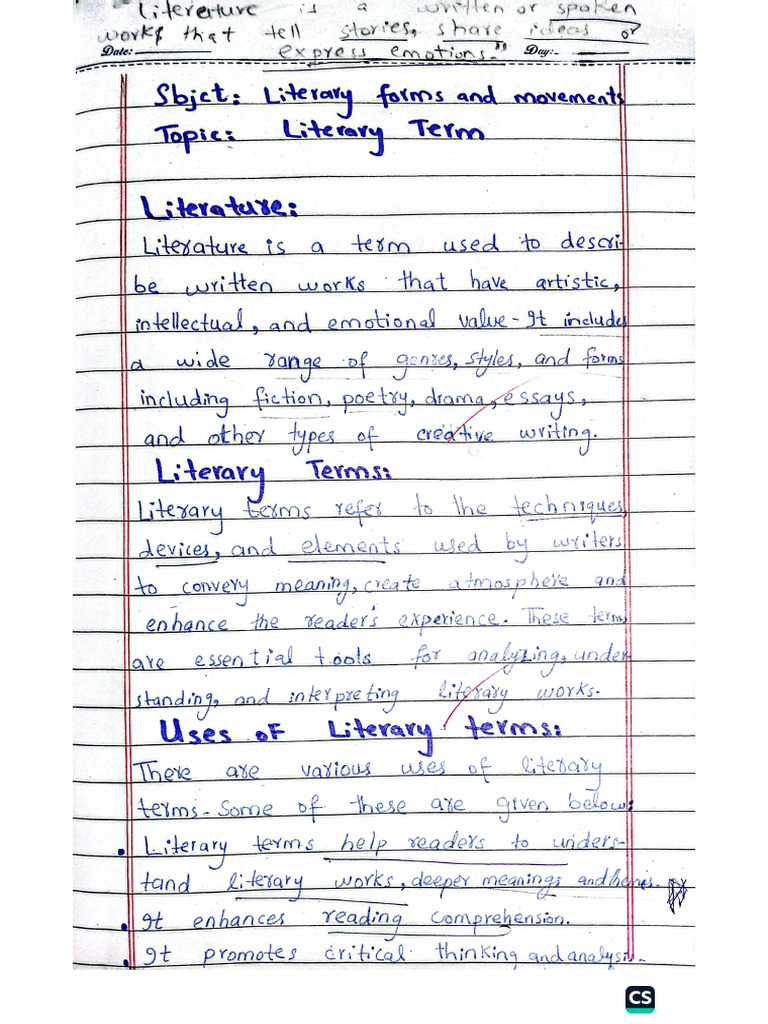 Litererture is a written or spoken
works that tell stories, share ideas or
Date: Day:-
express emotions."
Sbjct: Literary forms and movements
Topic: Literary Term
Literature:
Literature is a term used to descri-
be written works that have artistic,
intellectual, and emotional value - It includes
a wide range of genres, styles, and forms
including fiction, poetry, drama, essays,
and other types of creative writing.
Literary Terms:
Literary terms refer to the techniques,
devices, and elements used by writers
to convery meaning, create atmosphere and
enhance the reader's experience. These terms
are essential tools for analyzing, under-
standing, and interpreting literary works.
Uses of Literary terms:
There are various uses of literary
terms - Some of these are given below:
• Literary terms help readers to unders-
tand literary works, deeper meanings and themes.
• It enhances reading comprehension.
• It promotes critical thinking and analysis.
CS